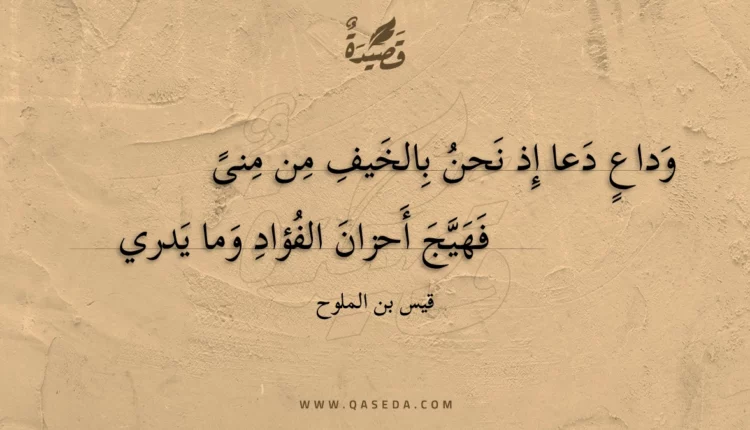 قَصِيدَةٌ
وَداعٍ دَعا إِذ نَحنُ بِالخَيفِ مِن مِنىً
فَهَيَّجَ أَحزانَ الفُؤادِ وَما يَدري
قيس بن الملوح
WWW.QASEDA.COM